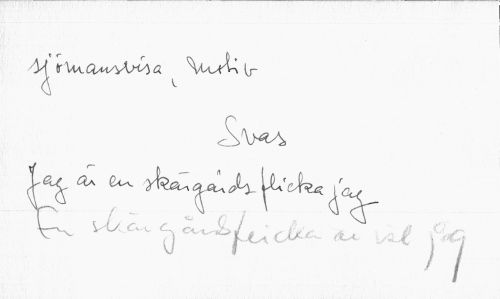 sjömansvisa, motiv
Svas
Jag är en skärgårdsflicka jag
En skärgårdsflicka är väl jag